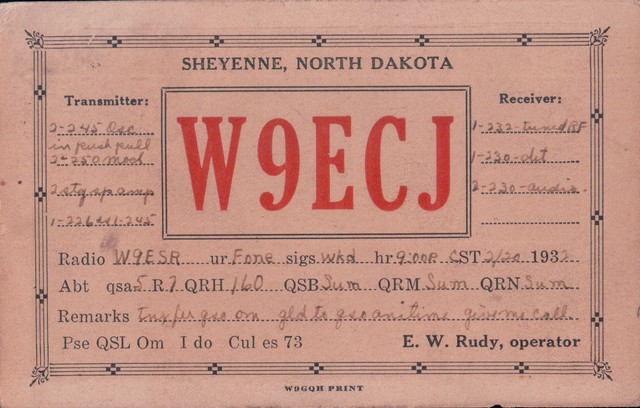 SHEYENNE, NORTH DAKOTA
Transmitter:
2-245 Osc
in push pull
2-250 mod
2 stg sp amp
1-226 & 1-245
W9ECJ
Receiver:
1-232-tuned RF
1-230-det
2-230-audio
Radio W9ESR ur Fone sigs wkd hr 9:00P CST 2/20 1932
Abt qsa 5 R 7 QRH 160 QSB Sum QRM Sum QRN Sum
Remarks Tnx fer qso om gld to qso anitime give me call
Pse QSL Om I do Cul es 73 E. W. Rudy, operator
W9GQH PRINT